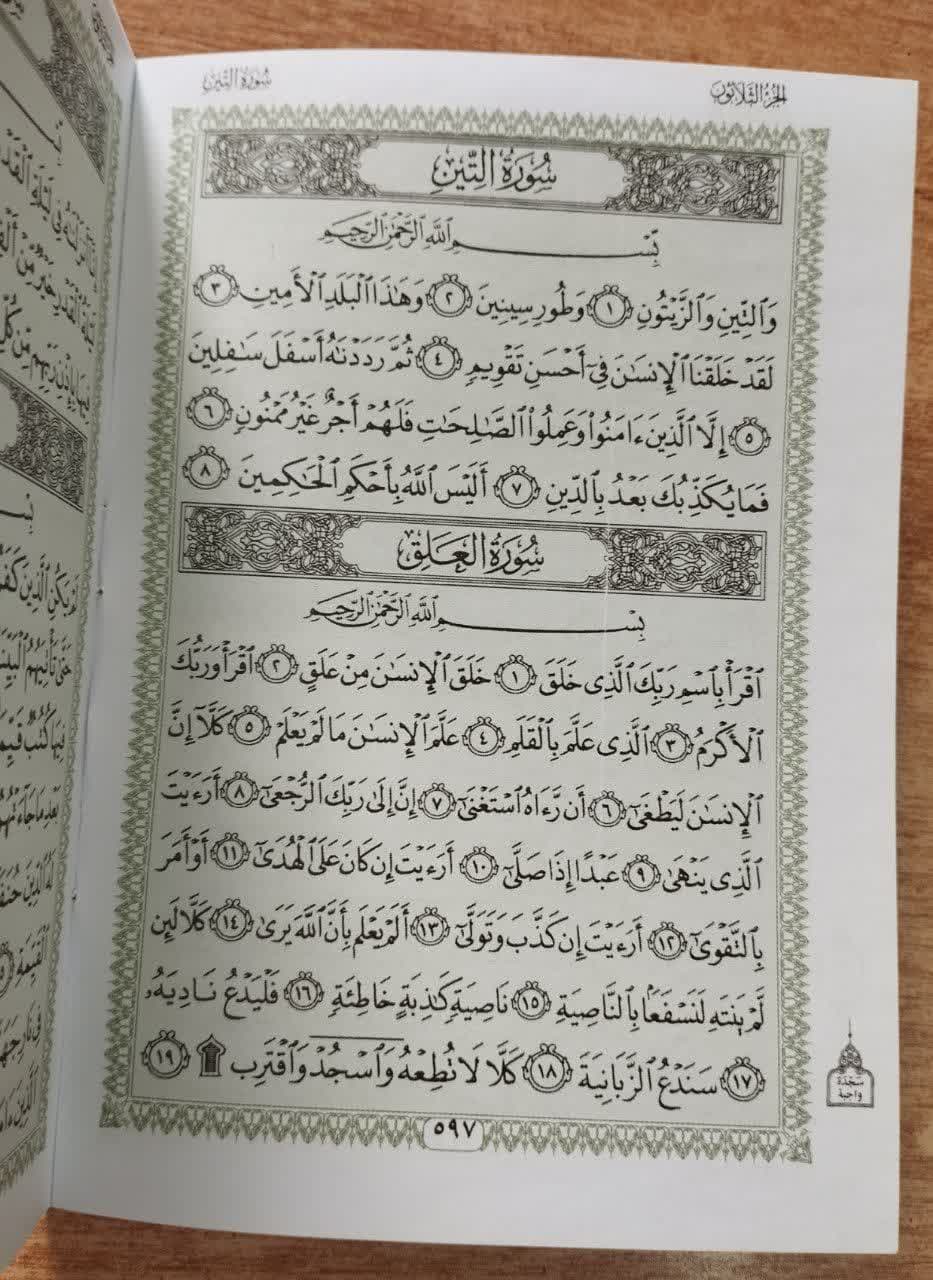 سُورَةُ التِّينِ
الجُزْءُ الثَّلَاثُونَ
سُورَةُ التِّينِ
بِسْمِ اللَّهِ الرَّحْمَٰنِ الرَّحِيمِ
وَٱلتِّينِ وَٱلزَّيْتُونِ ١ وَطُورِ سِينِينَ ٢ وَهَٰذَا ٱلْبَلَدِ ٱلْأَمِينِ ٣
لَقَدْ خَلَقْنَا ٱلْإِنسَٰنَ فِىٓ أَحْسَنِ تَقْوِيمٍ ٤ ثُمَّ رَدَدْنَٰهُ أَسْفَلَ سَٰفِلِينَ
٥ إِلَّا ٱلَّذِينَ ءَامَنُوا۟ وَعَمِلُوا۟ ٱلصَّٰلِحَٰتِ فَلَهُمْ أَجْرٌ غَيْرُ مَمْنُونٍ ٦
فَمَا يُكَذِّبُكَ بَعْدُ بِٱلدِّينِ ٧ أَلَيْسَ ٱللَّهُ بِأَحْكَمِ ٱلْحَٰكِمِينَ ٨
سُورَةُ العَلَقِ
بِسْمِ اللَّهِ الرَّحْمَٰنِ الرَّحِيمِ
ٱقْرَأْ بِٱسْمِ رَبِّكَ ٱلَّذِى خَلَقَ ١ خَلَقَ ٱلْإِنسَٰنَ مِنْ عَلَقٍ ٢ ٱقْرَأْ وَرَبُّكَ
ٱلْأَكْرَمُ ٣ ٱلَّذِى عَلَّمَ بِٱلْقَلَمِ ٤ عَلَّمَ ٱلْإِنسَٰنَ مَا لَمْ يَعْلَمْ ٥ كَلَّآ إِنَّ
ٱلْإِنسَٰنَ لَيَطْغَىٰٓ ٦ أَن رَّءَاهُ ٱسْتَغْنَىٰٓ ٧ إِنَّ إِلَىٰ رَبِّكَ ٱلرُّجْعَىٰٓ ٨ أَرَءَيْتَ
ٱلَّذِى يَنْهَىٰ ٩ عَبْدًا إِذَا صَلَّىٰٓ ١٠ أَرَءَيْتَ إِن كَانَ عَلَى ٱلْهُدَىٰٓ ١١ أَوْ أَمَرَ
بِٱلتَّقْوَىٰٓ ١٢ أَرَءَيْتَ إِن كَذَّبَ وَتَوَلَّىٰٓ ١٣ أَلَمْ يَعْلَم بِأَنَّ ٱللَّهَ يَرَىٰ ١٤ كَلَّا لَئِن
لَّمْ يَنتَهِ لَنَسْفَعًۢا بِٱلنَّاصِيَةِ ١٥ نَاصِيَةٍ كَٰذِبَةٍ خَاطِئَةٍ ١٦ فَلْيَدْعُ نَادِيَهُۥ
١٧ سَنَدْعُ ٱلزَّبَانِيَةَ ١٨ كَلَّا لَا تُطِعْهُ وَٱسْجُدْ وَٱقْتَرِب ۩ ١٩
سَجْدَة
واجبة
٥٩٧